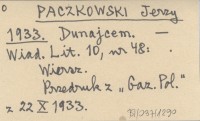 PACZKOWSKI Jerzy
1933. Dunajcem. —
Wiad. Lit. 10, nr 48:
Wiersz.
Przedruk z „Gaz. Pol."
z 22 X 1933.